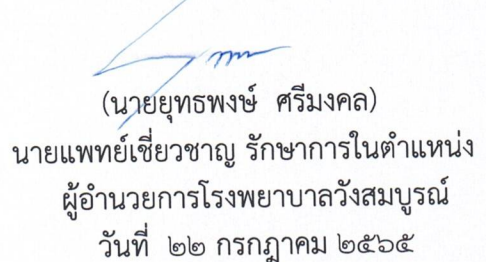 (นายยุทธพงษ์ ศรีมงคล)
นายแพทย์เชี่ยวชาญ รักษาการในตำแหน่ง
ผู้อำนวยการโรงพยาบาลวังสมบูรณ์
วันที่ ๒๒ กรกฎาคม ๒๕๖๕